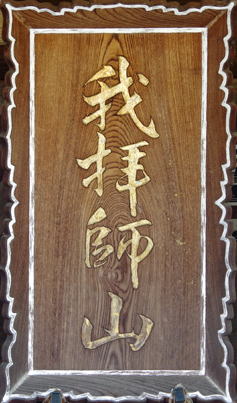 我拝師山